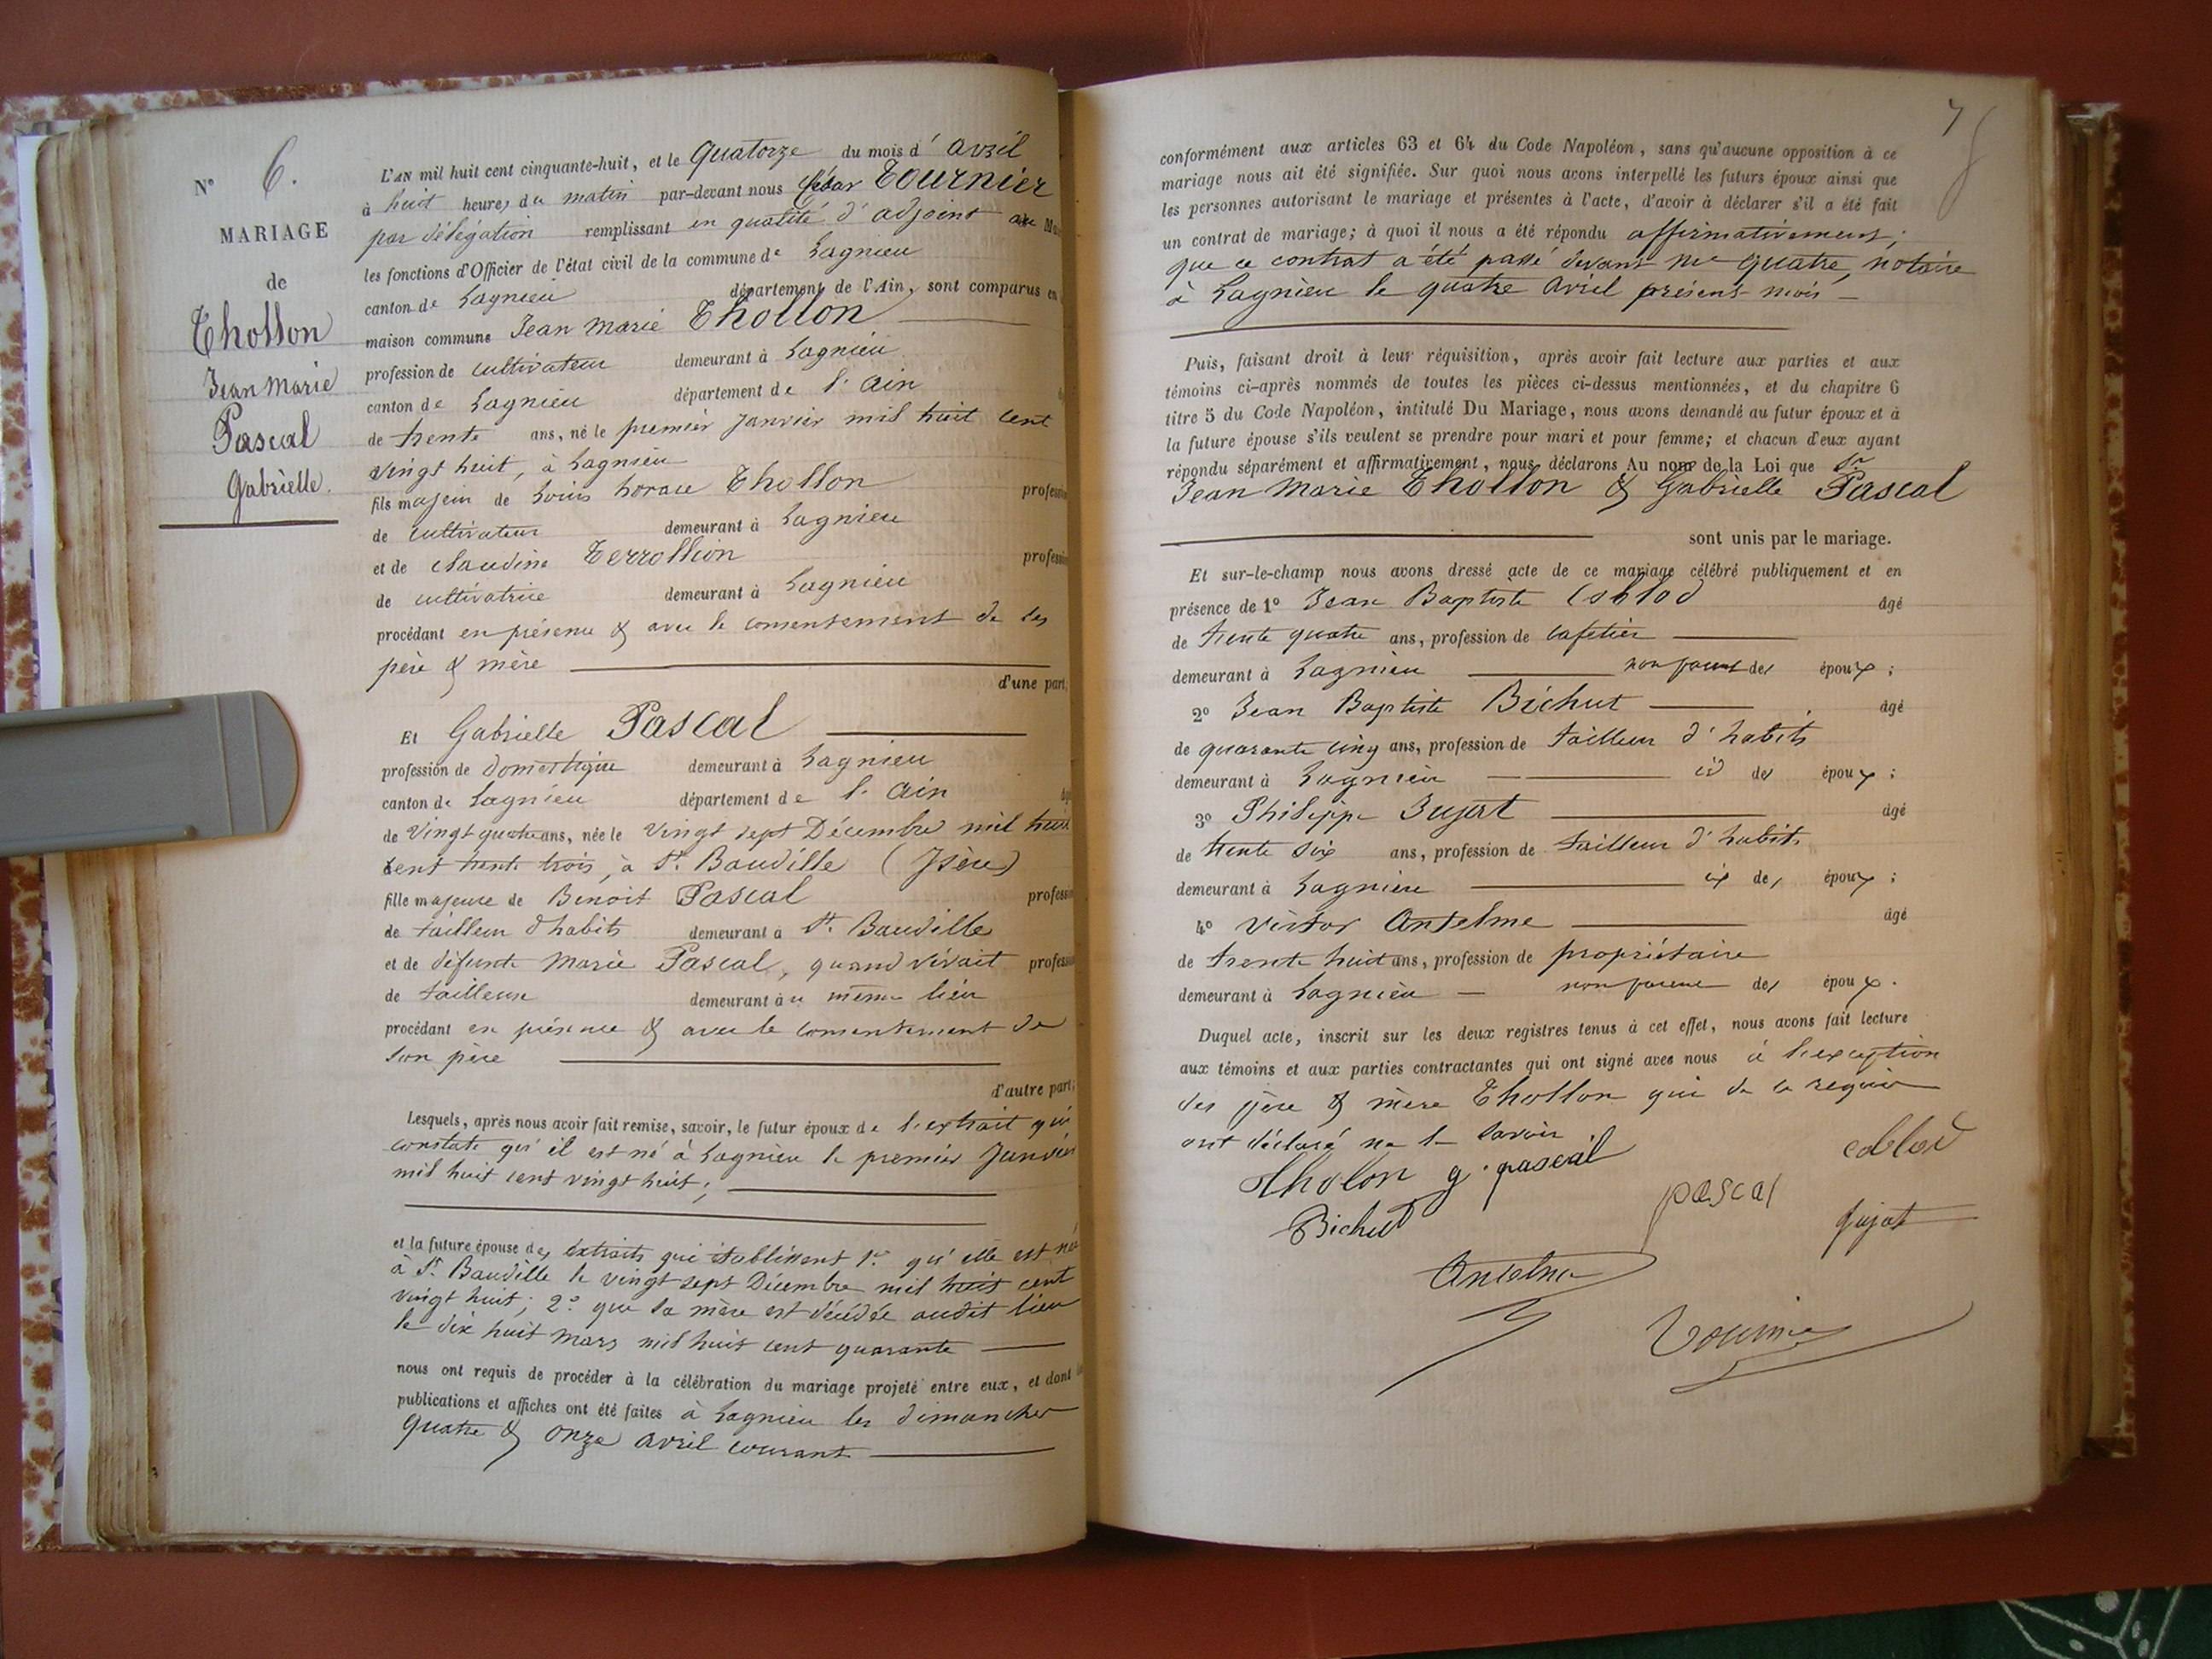 N° 6.
MARIAGE
de
Thollon
Jean Marie
Pascal
Gabrielle.
L'AN mil huit cent cinquante-huit, et le Quatorze du mois d' avril
à huit heures du matin par-devant nous César Tournier
par délégation remplissant en qualité d'adjoint au
les fonctions d'Officier de l'état civil de la commune de Lagnieu
canton de Lagnieu département de l'Ain, sont comparus en
maison commune Jean Marie Thollon
profession de cultivateur demeurant à Lagnieu
canton de Lagnieu département de l'Ain
de trente ans, né le premier Janvier mil huit cent
vingt huit, à Lagnieu
fils majeur de Louis horace Thollon
de cultivateur demeurant à Lagnieu
et de claudine Terrollion
de cultivatrice demeurant à Lagnieu
procédant en présence & avec le consentement de ses
père & mère
d'une part;
Et Gabrielle Pascal
profession de domestique demeurant à Lagnieu
canton de Lagnieu département de l'Ain
de Vingt quatre ans, née le Vingt sept Décembre mil huit
cent trente trois, à St. Baudille (Isère)
fille majeure de Benoit Pascal
de tailleur d'habits demeurant à St. Baudille
et de défunte Marie Pascal, quand vivait
de tailleuse demeurant au même lieu
procédant en présence & avec le consentement de
son père
d'autre part;
Lesquels, après nous avoir fait remise, savoir, le futur époux de l'extrait qui
constate qu'il est né à Lagnieu le premier Janvier
mil huit cent vingt huit;
et la future épouse des extraits qui établissent 1° qu'elle est née
à St. Baudille le vingt sept Décembre mil huit cent
vingt huit; 2° que sa mère est décédée audit lieu
le dix huit Mars mil huit cent quarante
nous ont requis de procéder à la célébration du mariage projeté entre eux, et dont
publications et affiches ont été faites à Lagnieu les dimanches
Quatre & Onze avril courant
7
conformément aux articles 63 et 64 du Code Napoléon, sans qu'aucune opposition à ce
mariage nous ait été signifiée. Sur quoi nous avons interpellé les futurs époux ainsi que
les personnes autorisant le mariage et présentes à l'acte, d'avoir à déclarer s'il a été fait
un contrat de mariage; à quoi il nous a été répondu affirmativement;
que ce contrat a été passé devant Me Quatre, notaire
à Lagnieu le quatre Avril présent mois
Puis, faisant droit à leur réquisition, après avoir fait lecture aux parties et aux
témoins ci-après nommés de toutes les pièces ci-dessus mentionnées, et du chapitre 6
titre 5 du Code Napoléon, intitulé Du Mariage, nous avons demandé au futur époux et à
la future épouse s'ils veulent se prendre pour mari et pour femme; et chacun d'eux ayant
répondu séparément et affirmativement, nous déclarons Au nom de la Loi que
Jean Marie Thollon & Gabrielle Pascal
sont unis par le mariage.
Et sur-le-champ nous avons dressé acte de ce mariage célébré publiquement et en
présence de 1° Jean Baptiste Coblod âgé
de trente quatre ans, profession de cafetier
demeurant à Lagnieu non parent des époux;
2° Jean Baptiste Bichut âgé
de quarante cinq ans, profession de tailleur d'habits
demeurant à Lagnieu id des époux;
3° Philippe Jujat âgé
de trente six ans, profession de tailleur d'habits
demeurant à Lagnieu id des époux;
4° Victor Anselme âgé
de trente huit ans, profession de propriétaire
demeurant à Lagnieu non parent des époux.
Duquel acte, inscrit sur les deux registres tenus à cet effet, nous avons fait lecture
aux témoins et aux parties contractantes qui ont signé avec nous à l'exception
des père & mère Thollon qui de ce requis
ont déclaré ne le savoir
Tholon g. pascal coblod
Bichut pascal Jujat
Anselme
Tournier